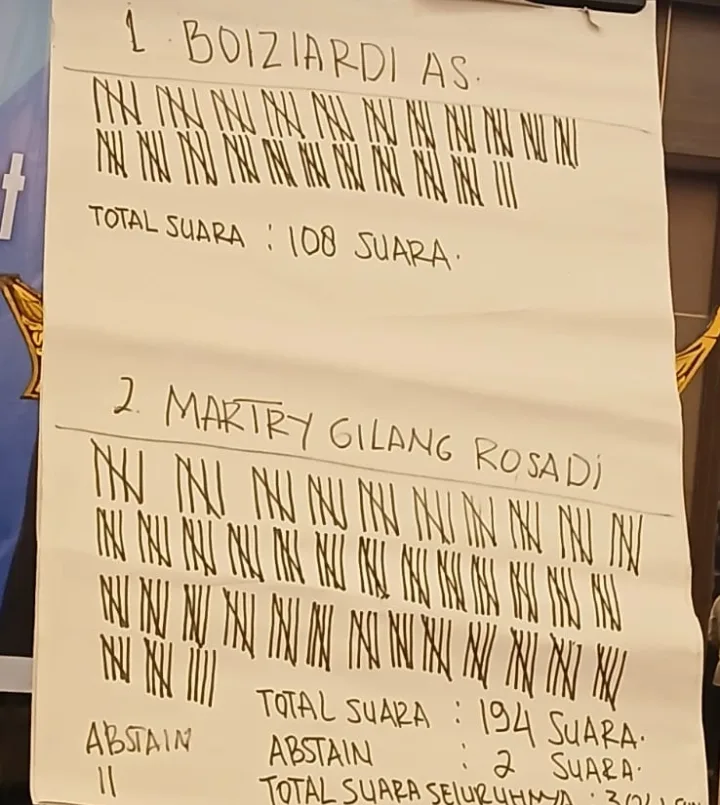 1. BOIZIARDI AS.
TOTAL SUARA : 108 SUARA.
2. MARTRY GILANG ROSADI
TOTAL SUARA : 194 SUARA.
ABSTAIN
ABSTAIN : 2 SUARA.
II
TOTAL SUARA SELURUHNYA :